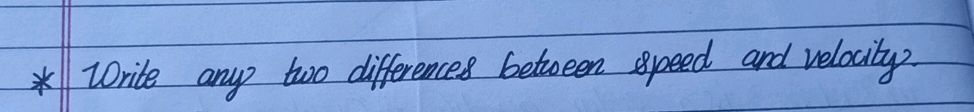 * Write any two differences between speed and velocity.